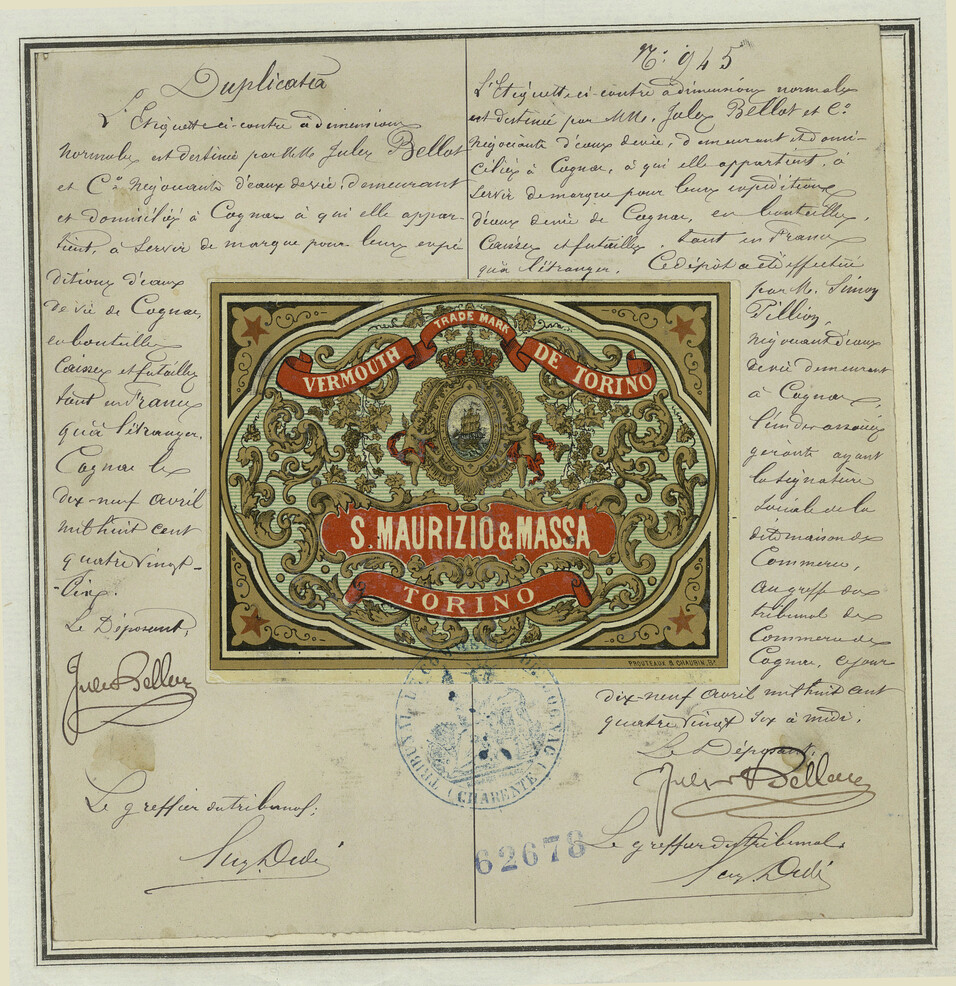 Duplicata
L'Etiquette ci-contre à dimensions
normales est destinée par MM. Jules Bellot
et Cie négociants d'eaux de vie, demeurant
et domiciliés à Cognac à qui elle appar-
tient, à servir de marque pour leurs expé
ditions d'eaux
de vie de Cognac,
en bouteilles
Caisses et futailles
tant en France
qu'à l'étranger.
Cognac le
dix-neuf avril
mil huit cent
quatre vingt-
-six.
Le Déposant,
Jules Bellot
Le greffier du tribunal;
N°: 945
L'Etiquette ci-contre à dimensions normales
est destinée par MM. Jules Bellot et Co
négociants d'eaux de vie, demeurant et domi-
ciliés à Cognac, à qui elle appartient, à
servir de marque pour leurs expéditions
d'eaux de vie de Cognac, en bouteilles,
Caisses et futailles, tant en France
qu'à l'étranger. Ce dépôt a été effectué
par M. Simon
Pillion,
négociant d'eaux
de vie demeurant
à Cognac
l'un des associés
gérants ayant
la signature
sociale de la
dite maison de
Commerce,
au greffe du
tribunal de
Commerce de
Cognac, ce jour
dix-neuf avril mil huit cent
quatre vingt six à midi.
Le Déposant,
Jules Bellot
Le greffier du tribunal
TRADE MARK
VERMOUTH DE TORINO
S. MAURIZIO & MASSA
TORINO
PROUTEAUX & CHAURIN, Bx
TRIBUNAL DE COMMERCE DE COGNAC
(CHARENTE)
62678